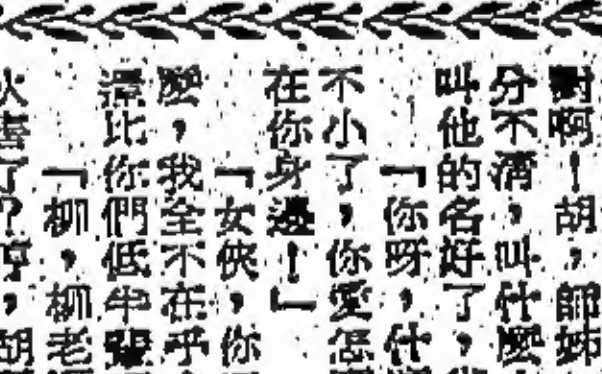 對啊！胡，師姊
分不清，叫什麼
叫他的名好了，
「你呀，什
不小了，你愛怎
在你身邊！」
「女俠，你
麼，我全不在乎
還比你們低半輩
「柳，柳老
了？哼，胡